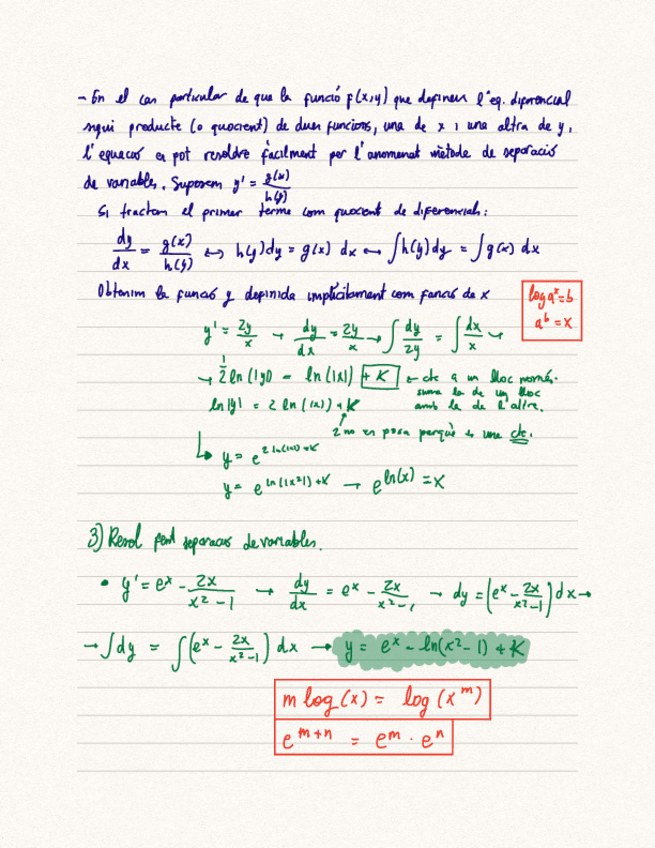 → En el cas particular de que la funció f(x,y) que defineix l'eq. diferencial
sigui producte (o quocient) de dues funcions, una de x i una altra de y,
l'equació es pot resoldre fàcilment per l'anomenat mètode de separació
de variables. Suposem y' = g(x)/h(y)
Si tractem el primer terme com quocient de diferencials:
dy/dx = g(x)/h(y) ↔ h(y)dy = g(x) dx ↔ ∫h(y)dy = ∫g(x) dx
Obtenim la funció y definida implícitament com funció de x
log a^x = b
a^b = x
y' = 2y/x → dy/dx = 2y/x → ∫dy/2y = ∫dx/x →
→ 1/2 ln(|y|) = ln(|x|) + K ← cte a un lloc només.
suma la de un lloc
amb la de l'altre.
ln|y| = 2 ln(|x|) + K
2 no es posa perquè es una cte.
↳ y = e^(2 ln(|x|)+K)
y = e^(ln(|x²|)+K) → e^(ln(x)) = x
3) Resol fent separacio de variables.
• y' = e^x - 2x/(x²-1) → dy/dx = e^x - 2x/(x²-1) → dy = (e^x - 2x/(x²-1)) dx →
→ ∫dy = ∫(e^x - 2x/(x²-1)) dx → y = e^x - ln(x²-1) + K
m log(x) = log(x^m)
e^(m+n) = e^m · e^n